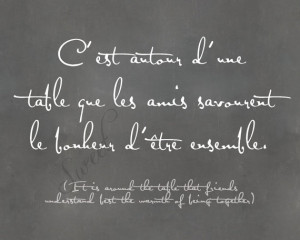 C'est autour d'une
table que les amis savourent
le bonheur d'être ensemble.
(It is around the table that friends
understand best the warmth of being together)